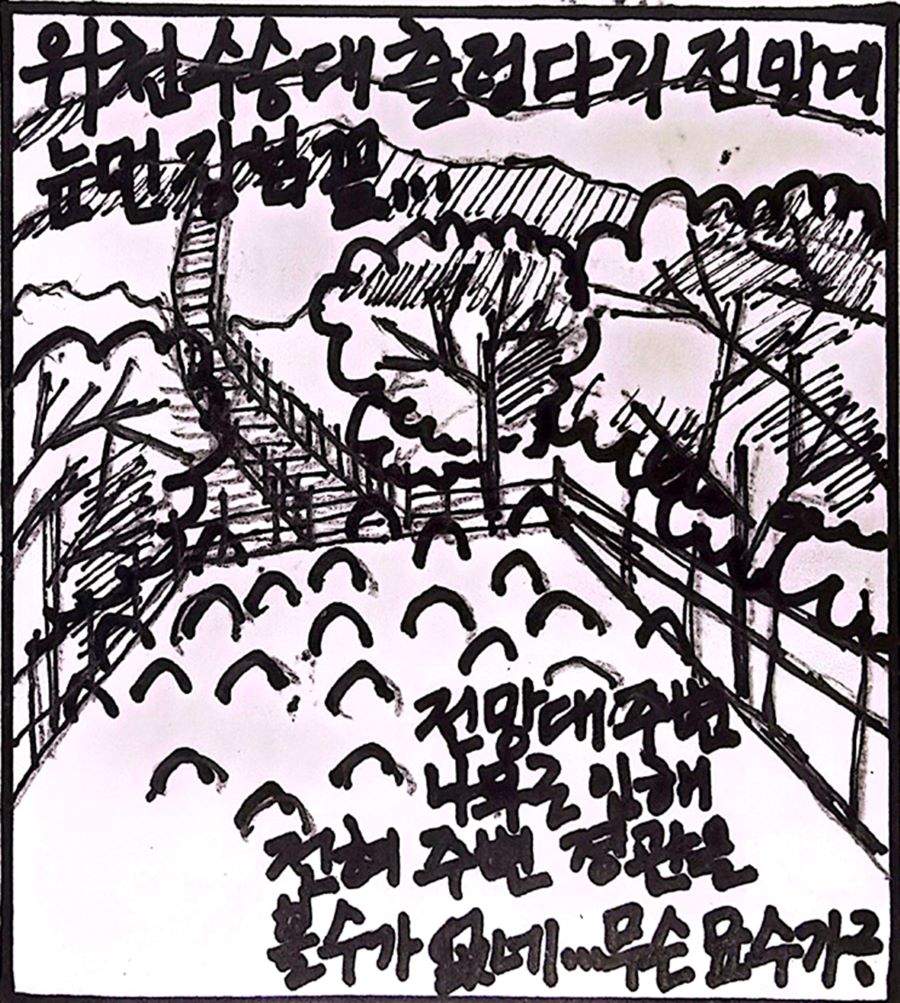 위천수승대 출렁다리 전망대
눈먼장님 꼴...
전망대 주변
나무로 인해
전혀 주변 경관을
볼수가 없네...무슨 묘수가?